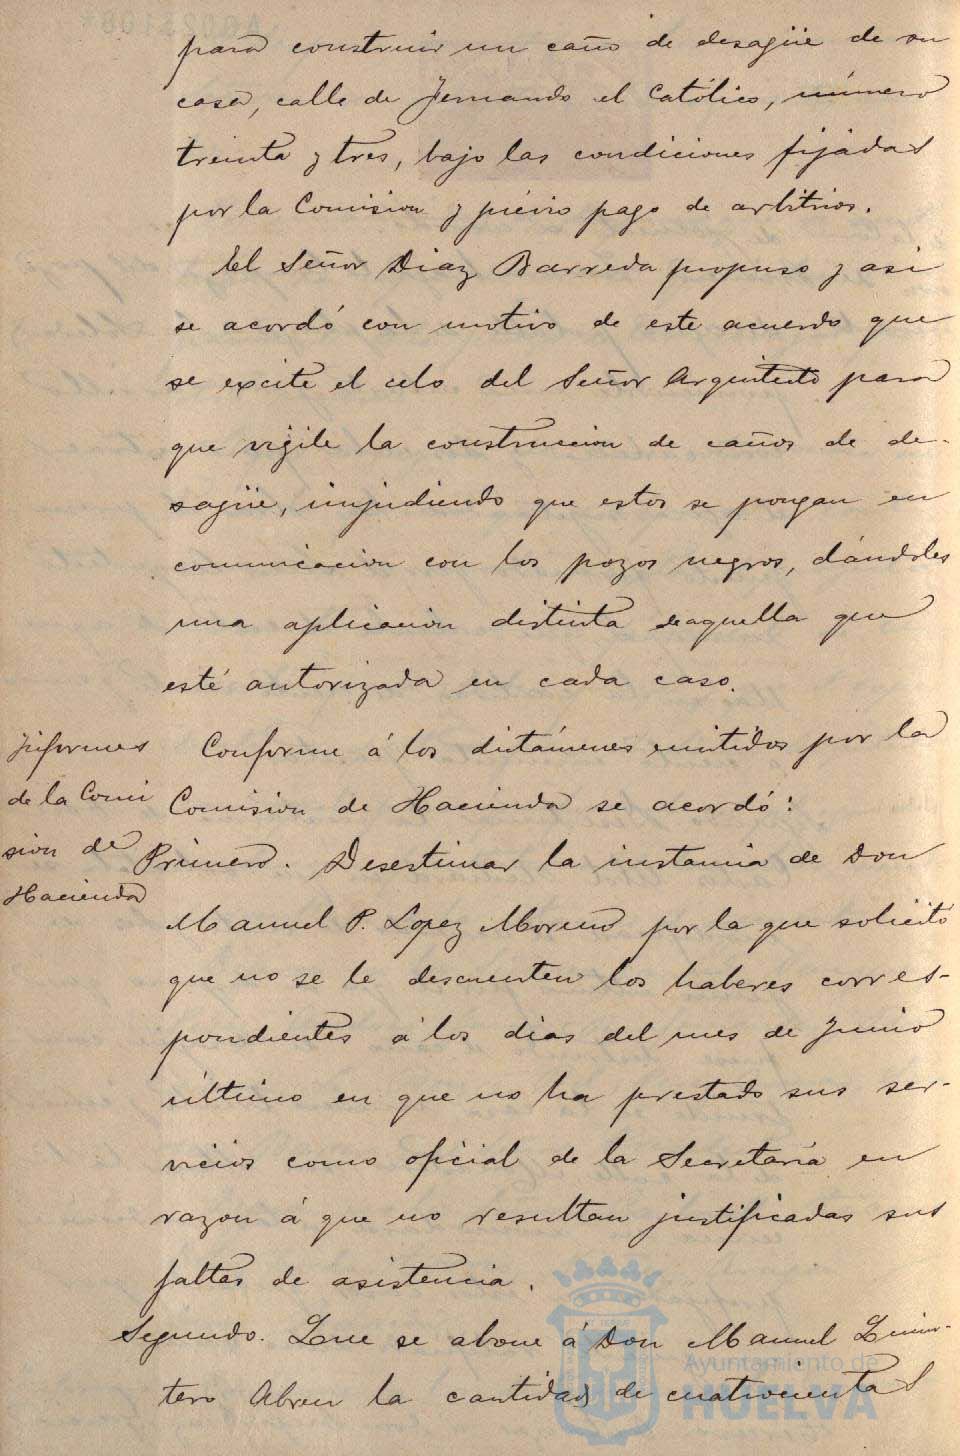 para construir un caño de desagüe de su
casa, calle de Fernando el Católico, número
treinta y tres, bajo las condiciones fijadas
por la Comision y prévio pago de arbitrios.
El Señor Diaz Barreda propuso y asi
se acordó con motivo de este acuerdo que
se excite el celo del Señor Arquitecto para
que vigile la construccion de caños de de-
sagüe, impidiendo que estos se pongan en
comunicacion con los pozos negros, dándoles
una aplicacion distinta de aquella que
esté autorizada en cada caso.
Informes
de la Comi
sion de
Hacienda
Conforme á los dictámenes emitidos por la
Comision de Hacienda se acordó:
Primero. Desestimar la instancia de Don
Manuel P. Lopez Moreno por la que solicitó
que no se le descuenten los haberes corres-
pondientes á los dias del mes de Junio
último en que no ha prestado sus ser-
vicios como oficial de la Secretaría en
razon á que no resultan justificadas sus
faltas de asistencia.
Segundo. Que se abone á Don Manuel Quin-
tero Abreu la cantidad de cuatrocientas
Ayuntamiento de
HUELVA